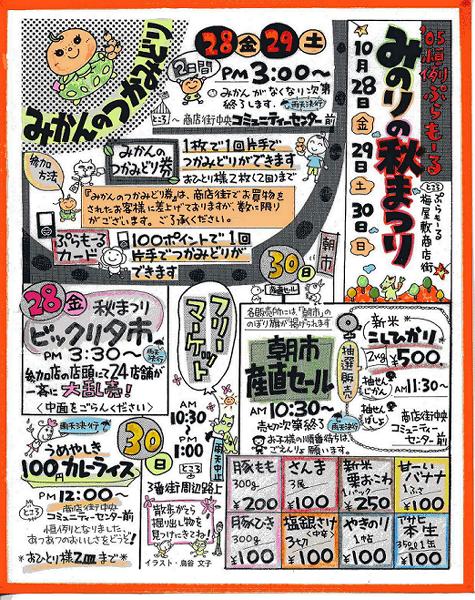 '05恒例ぷらもーる
みのりの秋まつり
10月28日金29日土30日日
ところ ぷらもーる
梅屋敷商店街
みかんのつかみどり
28金29土
2日間
PM3:00〜
みかんがなくなり次第
終了します。雨天決行
ところ〜商店街中央コミュニティーセンター前
参加方法
みかんの
つかみどり券
1枚で1回片手で
つかみどりができます
おひとり様2枚(2回)まで
『みかんのつかみどり券』は、商店街でお買物を
されたお客様に差上げておりますが、数に限り
がございます。ご了承ください。
ぷらもーる
カード
100ポイントで1回
片手でつかみどりが
できます
28金
秋まつり
ビックリ夕市
PM3:30〜
雨天決行
参加店の店頭にて24店舗が
一斉に大乱売!
<中面をごらんください>
フリーマーケット
AM
10:30
〜
PM
1:00
雨天中止
ところ
3番街周辺路上
散歩がてら
掘り出し物を
見つけにきてね!
イラスト・鳥谷 文子
雨天決行
30日
うめやしき
100円カレーライス
PM12:00〜
ところ
商店街中央
コミュニティーセンター前
恒例となりました、
あつあつのおいしさをどうぞ!
*おひとり様2皿まで*
30日
朝市
産直セール
各販売所には、「朝市」の
のぼり旗が掲げられます
朝市
産直セール
AM10:30〜
売切次第終了
雨天決行
お子様の順番待ちは、
ごえんりょ願います。
新米
こしひかり
2kg ¥500
抽選販売
抽せんじかん
AM11:30〜
抽せんばしょ
商店街中央
コミュニティー
センター前
豚もも
300g
¥200
さんま
3尾
¥100
新米
栗おこわ
1パック
¥250
甘〜い
バナナ
1ふさ
¥100
豚ひき
300g
¥100
塩銀さけ
3切(中辛)
¥100
やきのり
1帖
¥100
アサヒ
本生
350ml 1缶
¥100